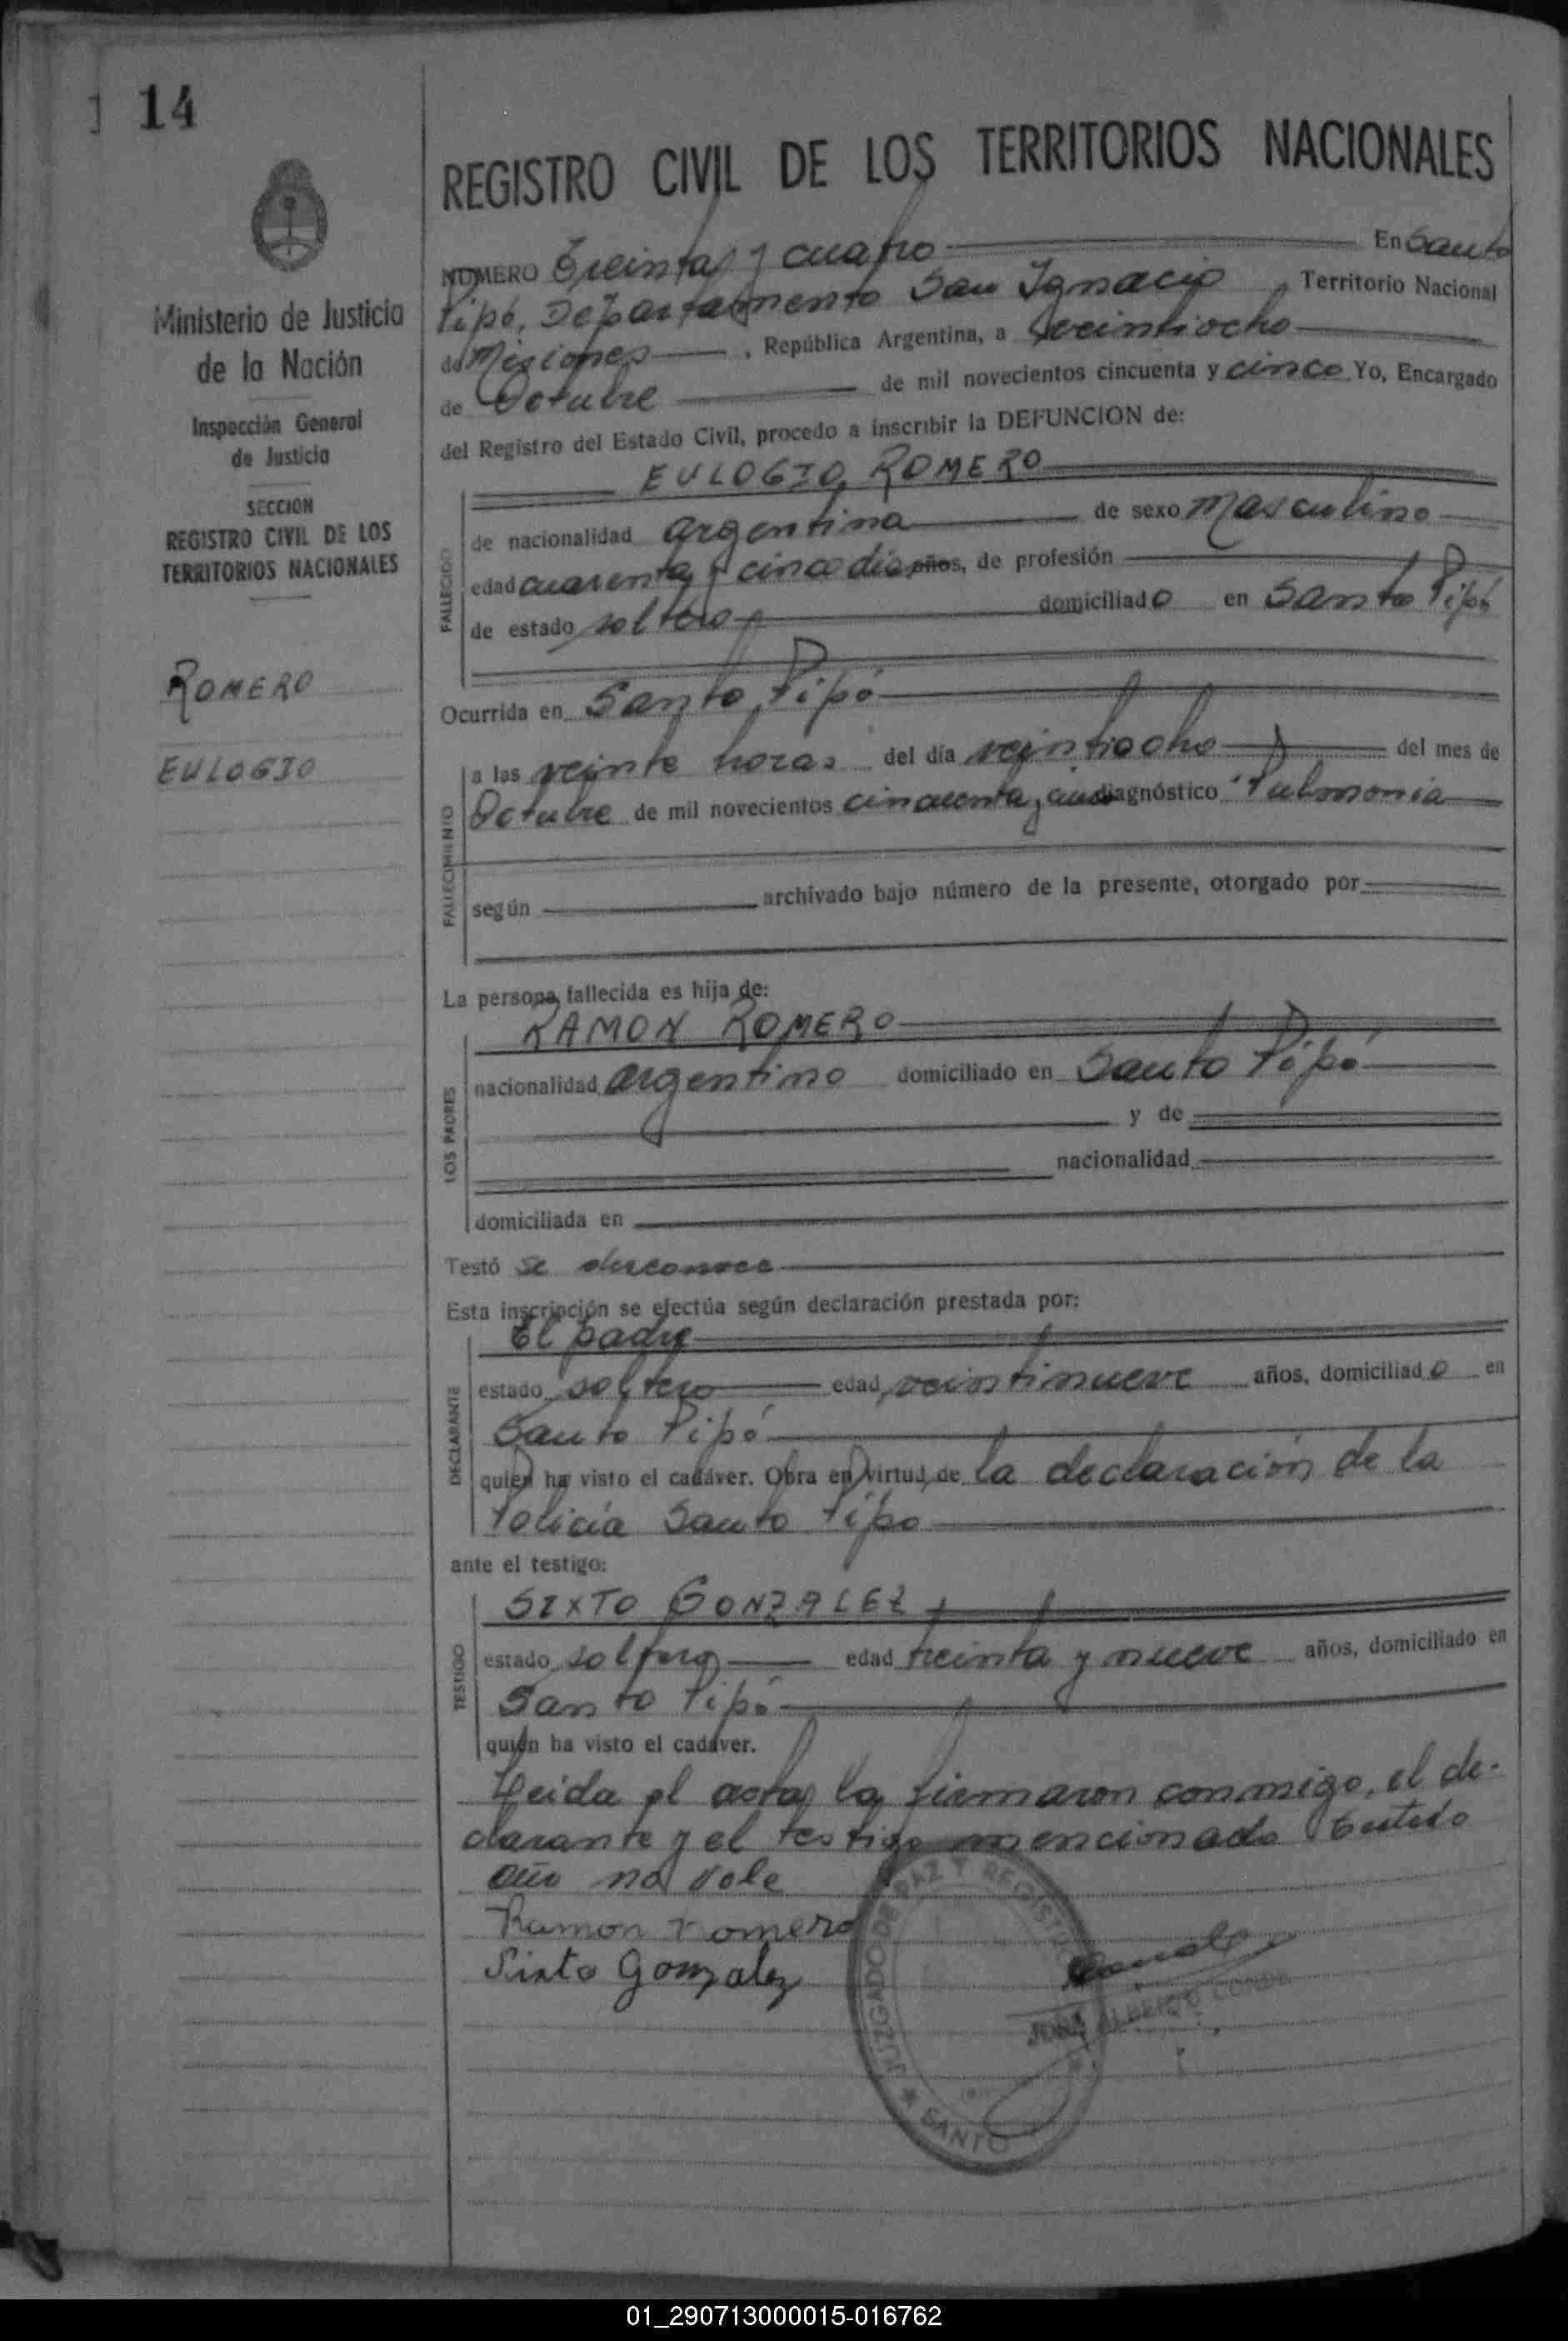 14
Ministerio de Justicia
de la Nación
Inspección General
de Justicia
SECCION
REGISTRO CIVIL DE LOS
TERRITORIOS NACIONALES
ROMERO
EULOGIO
REGISTRO CIVIL DE LOS TERRITORIOS NACIONALES
NÚMERO Treinta y cuatro En Santo
Pipó, Departamento San Ignacio, Territorio Nacional
de Misiones, República Argentina, a veintiocho
de Octubre de mil novecientos cincuenta y cinco Yo, Encargado
del Registro del Estado Civil, procedo a inscribir la DEFUNCION de:
EULOGIO ROMERO
FALLECIDO
de nacionalidad argentina de sexo Masculino
edad cuarenta y cinco dias años, de profesión
de estado soltero domiciliado en Santo Pipó
Ocurrida en Santo Pipó
FALLECIMIENTO
a las veinte horas del día veintiocho del mes de
Octubre de mil novecientos cincuenta y cinco diagnóstico "Pulmonia
según archivado bajo número de la presente, otorgado por
La persona fallecida es hija de:
LOS PADRES
RAMON ROMERO
nacionalidad argentino domiciliado en Santo Pipó
y de
nacionalidad
domiciliada en
Testó se desconoce
Esta inscripción se efectúa según declaración prestada por:
DECLARANTE
El padre
estado soltero edad veintinueve años, domiciliado en
Santo Pipó
quien ha visto el cadáver. Obra en virtud de la declaración de la
Policía Santo Pipó
ante el testigo:
TESTIGO
SIXTO GONZALEZ
estado soltero edad treinta y nueve años, domiciliado en
Santo Pipó
quien ha visto el cadáver.
Leida el acta la firmaron conmigo, el de-
clarante y el testigo mencionado Testado
año no vale
Ramon romero
Sixto Gonzalez
JUZGADO DE PAZ Y REGISTRO
SANTO
JOSE ALBERTO
01_290713000015-016762